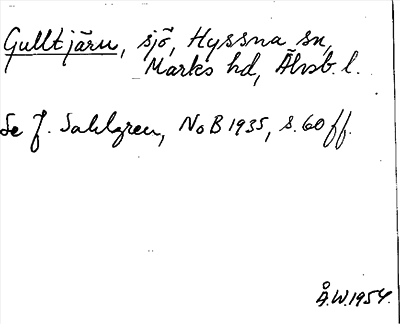 Gulltjärn, sjö, Hyssna sn,
Marks hd, Älvsb. l.
Se J. Sahlgren, NoB 1935, s. 60 ff.
Å.W. 1954.